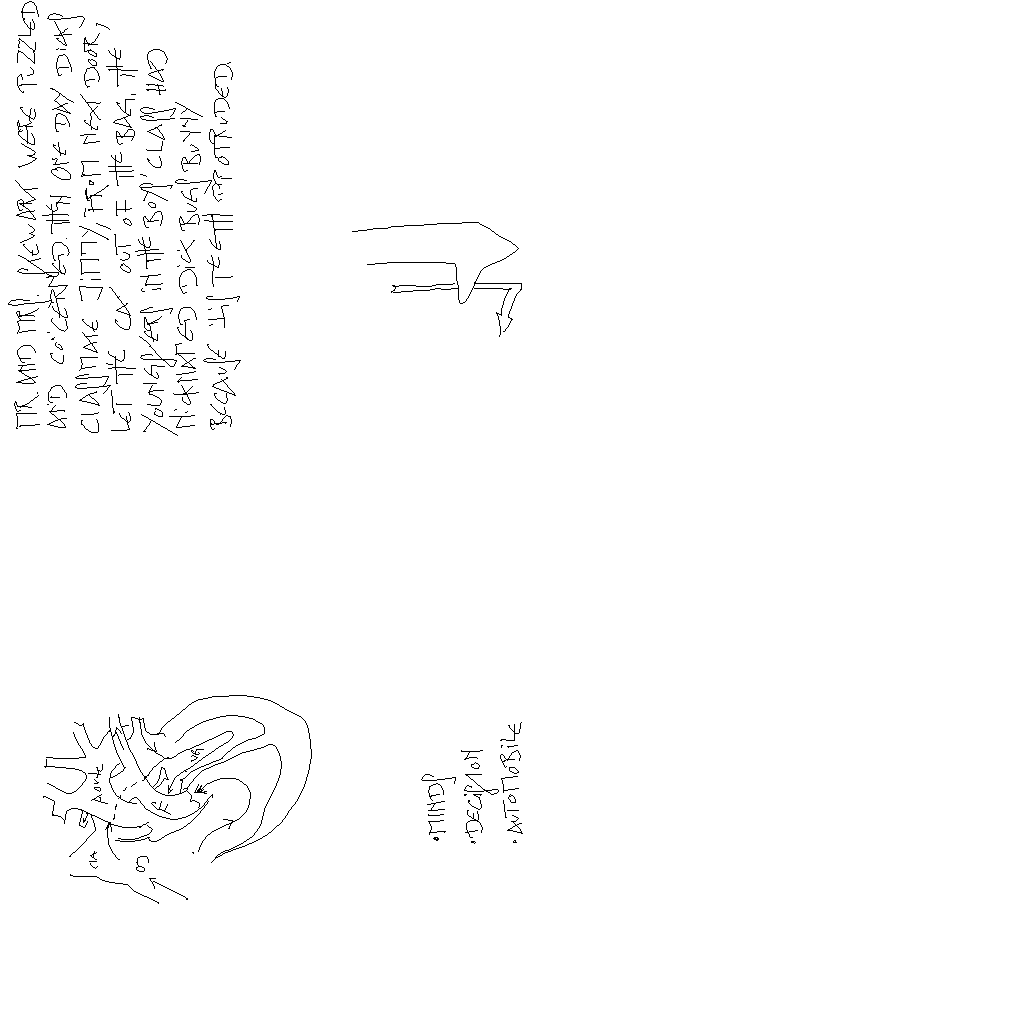 MR. AND MRS. STEWART WERE PUZZLED
AND CONCERNED. THEN ONE DAY DICK'S
CLASSMATE JIMMY, FROM NEXT DOOR,
LET THE CAT OUT OF THE BAG. THE
YOUNGSTERS IN THE BOYS' CLASS HAD
NICKNAMED DICK BUGS BUNNY
BECAUSE HIS TEETH PROTRUDED.
Aorta
•MINDS
•DECISION
•AUTOMOBILE